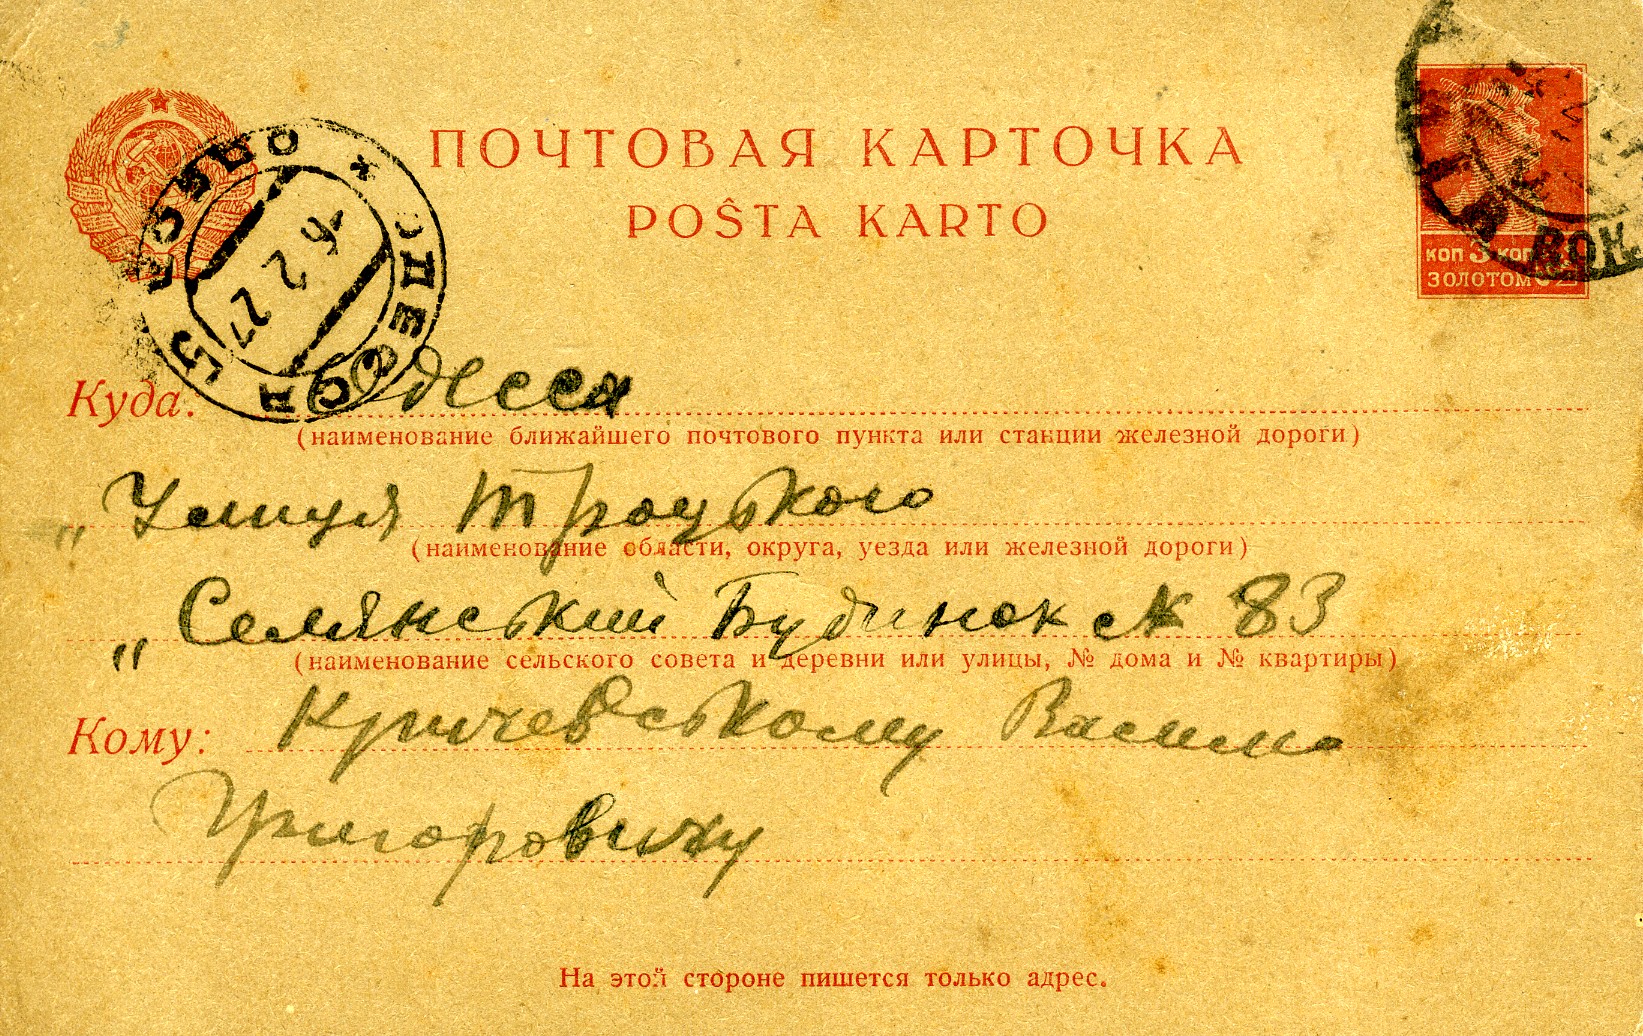 ПОЧТОВАЯ КАРТОЧКА
POŜTA KARTO
КОП 3 КОП
ЗОЛОТОМ
ОДЕССА
6 2 27
ВОК.
Куда: Одесса
(наименование ближайшего почтового пункта или станции железной дороги)
„ Улиця Троцького
(наименование области, округа, уезда или железной дороги)
„ Селянський Будинок № 83
(наименование сельского совета и деревни или улицы, № дома и № квартиры)
Кому: Кричевському Василю
Григоровичу
На этой стороне пишется только адрес.